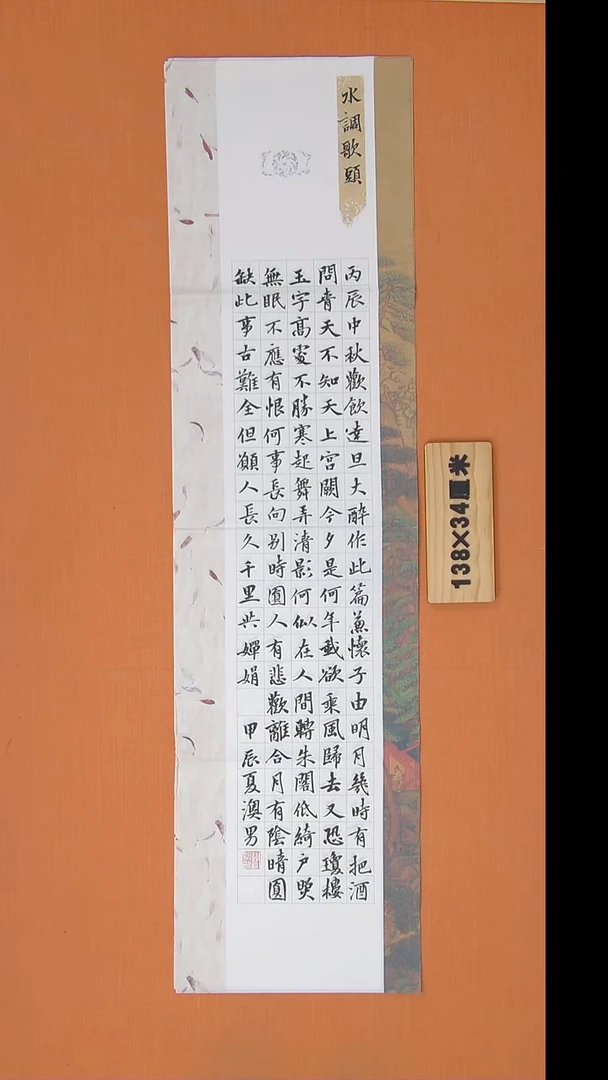 水調歌頭
丙辰中秋歡飲達旦大醉作此篇兼懷子由明月幾時有把酒
問青天不知天上宮闕今夕是何年我欲乘風歸去又恐瓊樓
玉宇高處不勝寒起舞弄清影何似在人間轉朱閣低綺戶照
無眠不應有恨何事長向別時圓人有悲歡離合月有陰晴圓
缺此事古難全但願人長久千里共嬋娟 甲辰夏澳男
138×34厘米